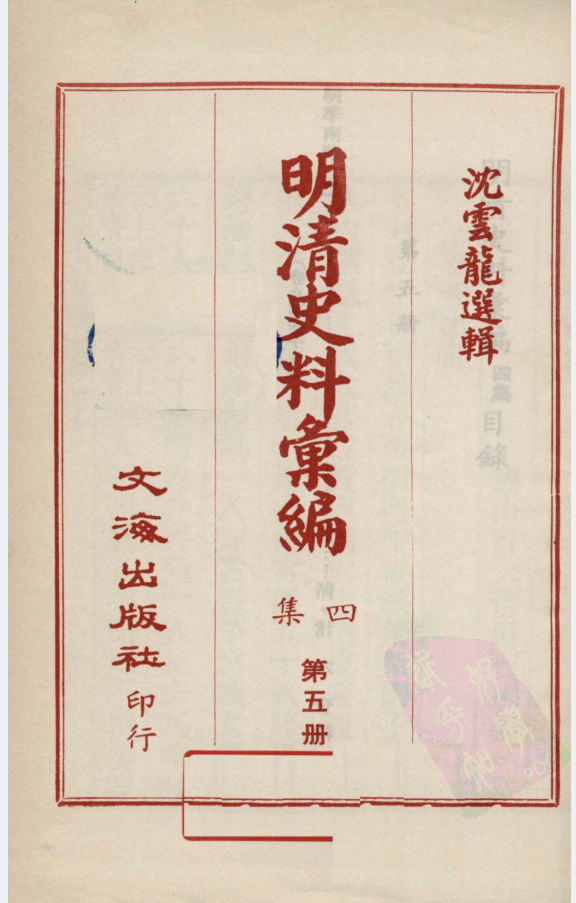 沈雲龍選輯
明清史料彙編
四集
第五册
文海出版社印行